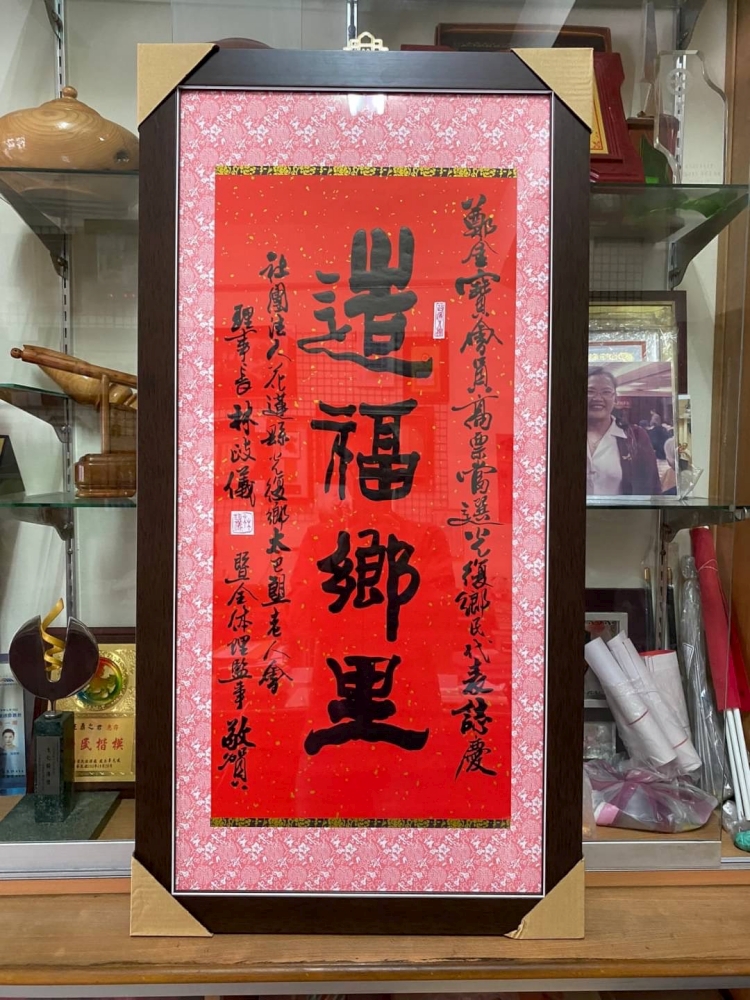 鄭金寶會員高票當選光復鄉民代表誌慶
造福鄉里
社團法人花蓮縣光復鄉太巴塱老人會
理事長林政儀
暨全体理監事
敬賀
民楷模